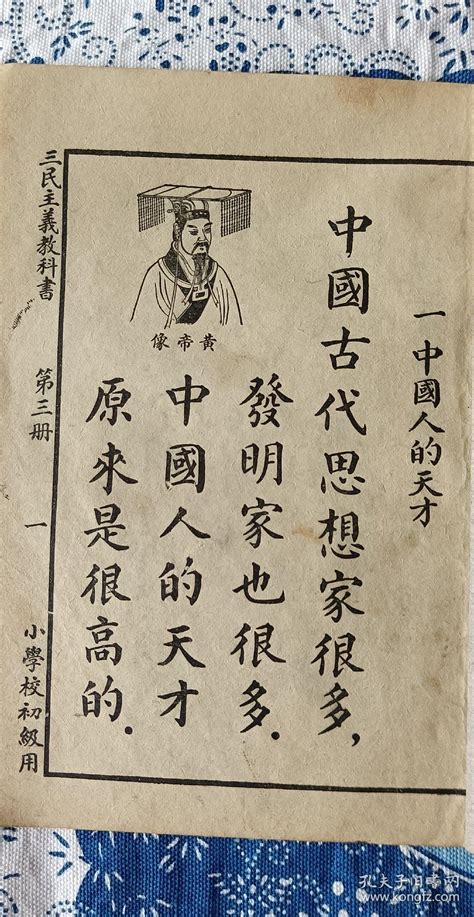 一 中國人的天才
中國古代思想家很多，
發明家也很多．
中國人的天才
原來是很高的．
黃帝像
三民主義教科書 第三册 一 小學校初級用
孔夫子旧书网
www.kongfz.com